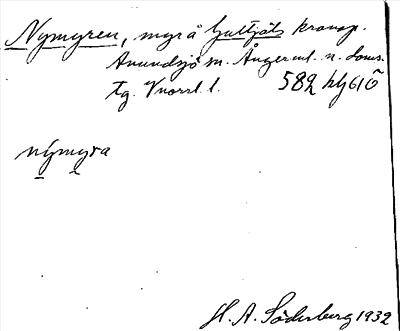 Nymyren, myr å Gulltjäls kronop.
Anundsjö sn. Ångerml. n. doms.
tg. V norrl. l. 582 hlj 61ö
nýmyra
H. A. Söderberg 1932